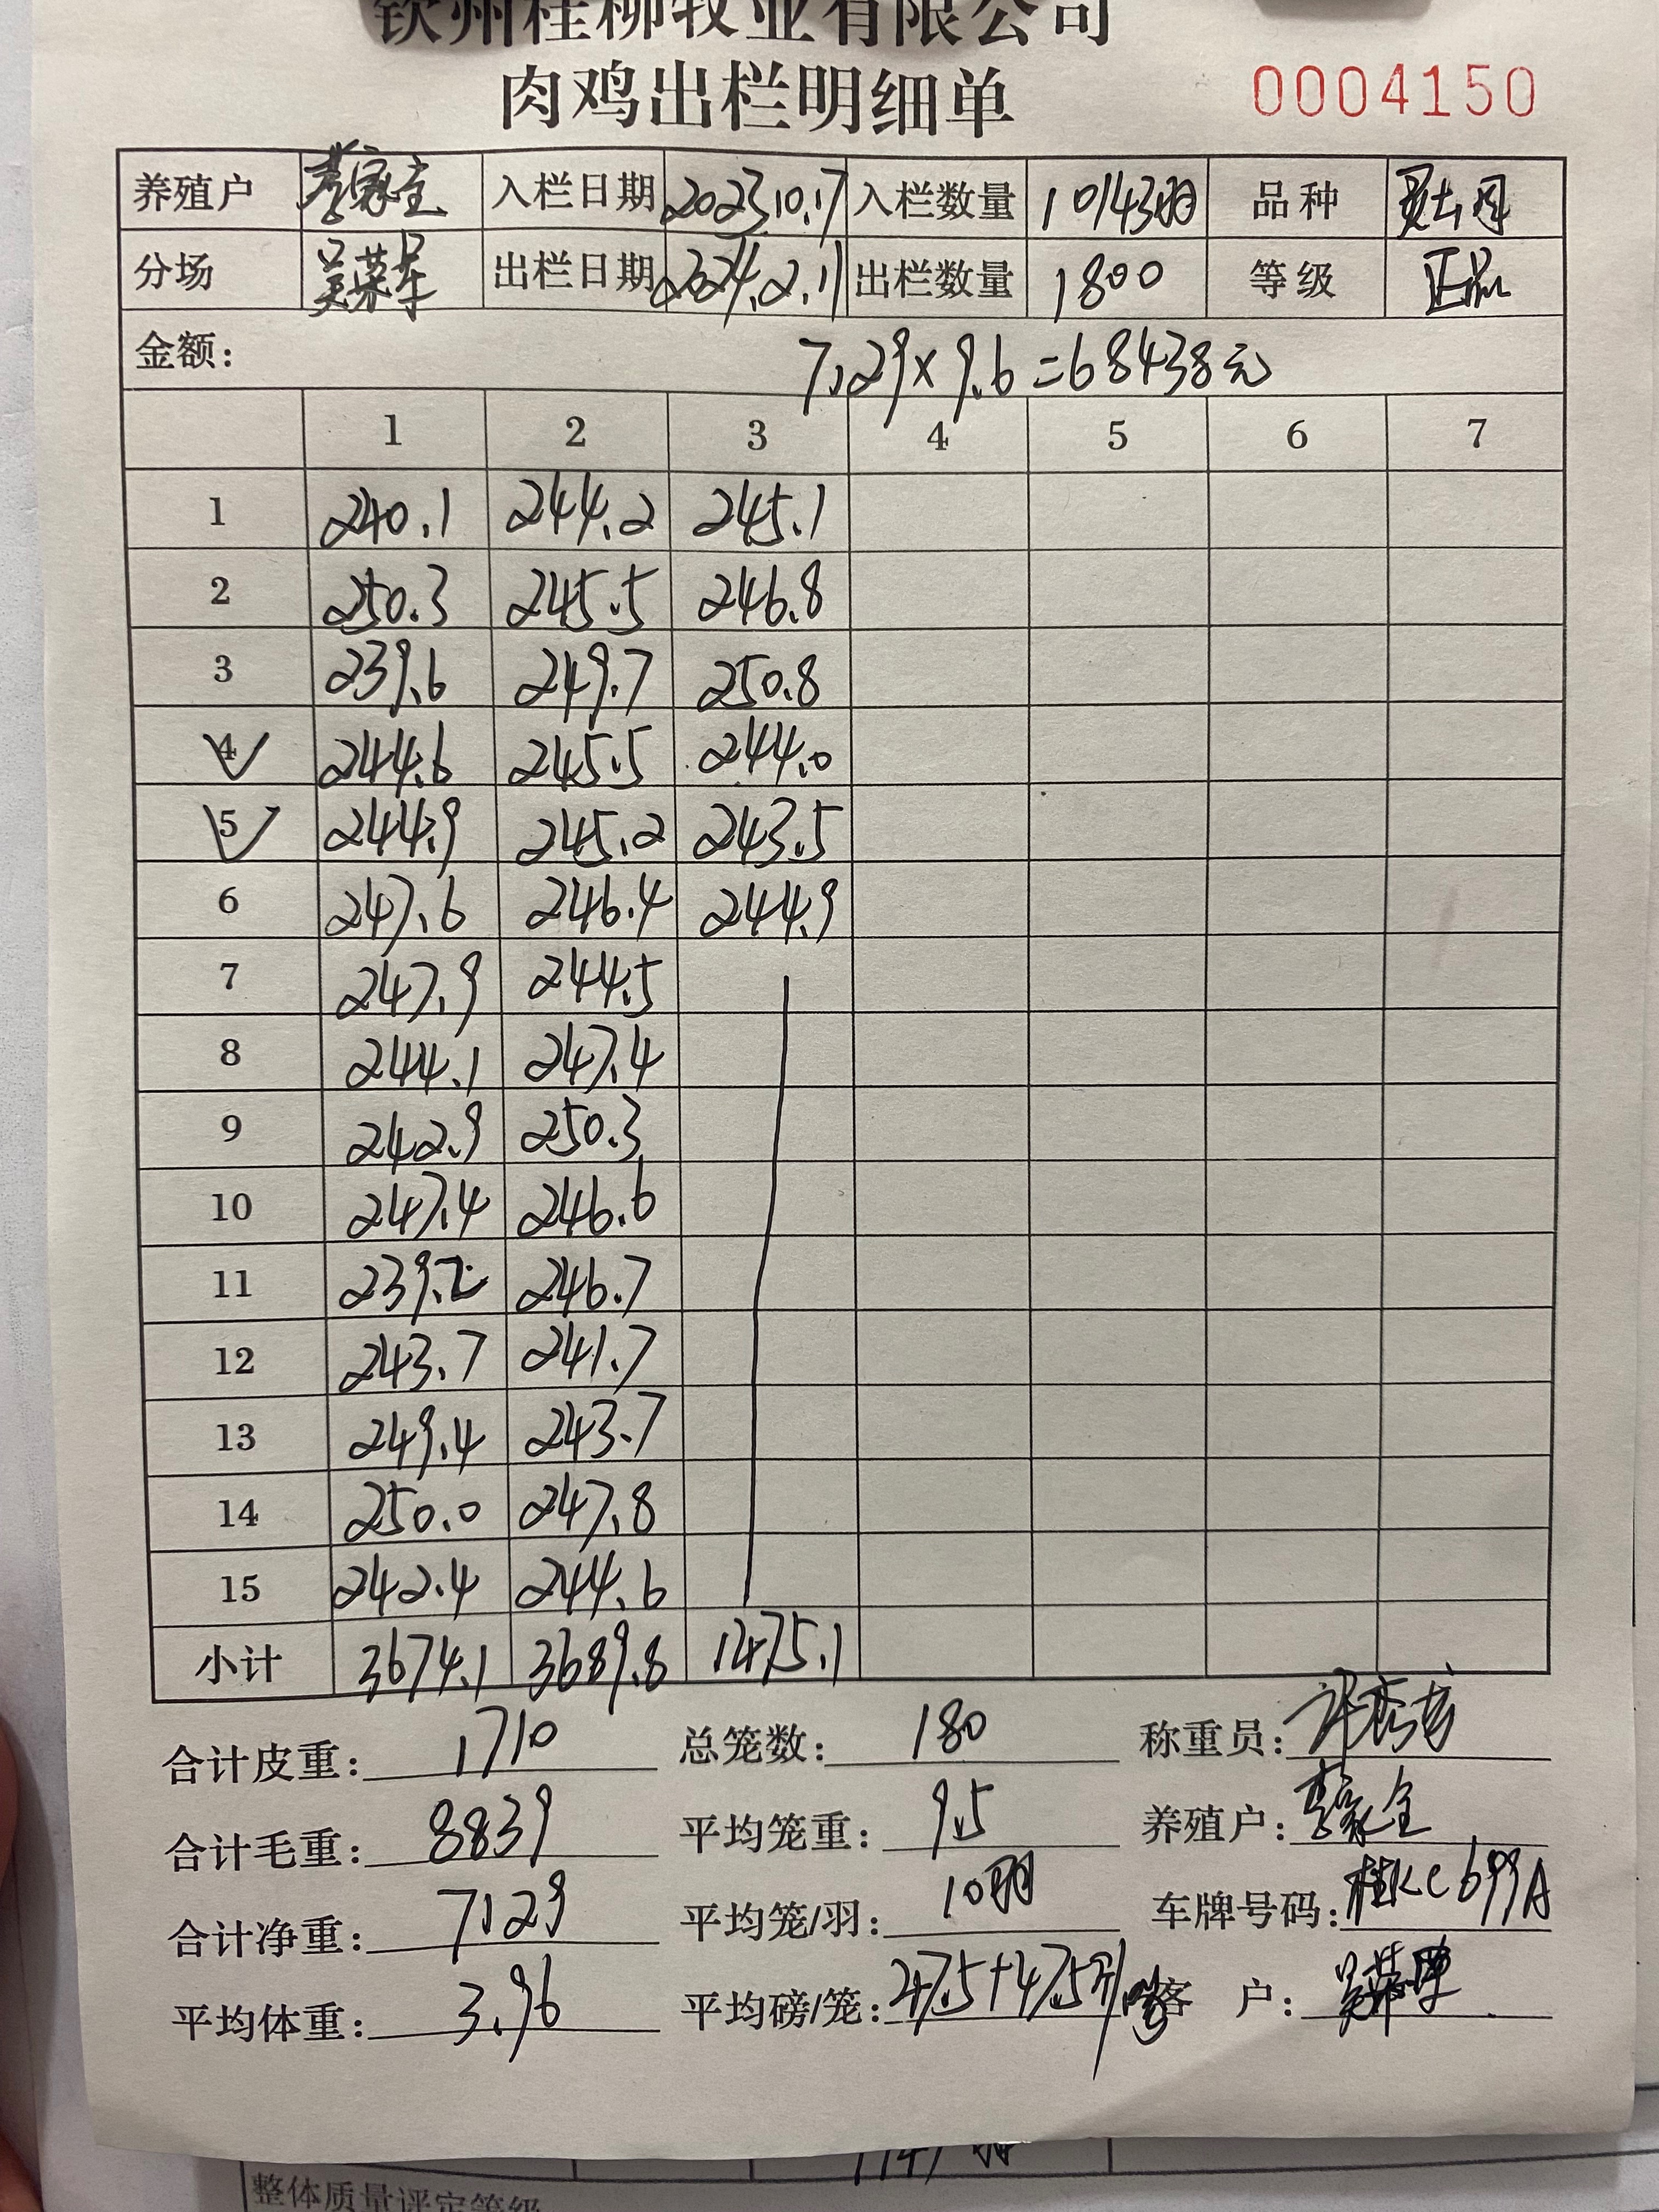 钦州桂柳牧业有限公司
肉鸡出栏明细单 0004150
养殖户 入栏日期 2023.10.17 入栏数量 10143羽 品种
分场 出栏日期 2024.2.11 出栏数量 1800 等级 正品
金额: 7129×9.6=68438元
1 2 3 4 5 6 7
1 240.1 244.2 245.1
2 250.3 245.5 246.8
3 239.6 249.7 250.8
4 244.6 245.5 244.0
5 244.9 245.2 243.5
6 247.6 246.4 244.9
7 247.9 244.5
8 244.1 247.4
9 242.9 250.3
10 247.4 246.6
11 239.2 246.7
12 243.7 241.7
13 249.4 243.7
14 250.0 247.8
15 242.4 244.6
小计 3674.1 3689.8 1475.1
合计皮重: 1710 总笼数: 180 称重员:
合计毛重: 8839 平均笼重: 9.5 养殖户:
合计净重: 7129 平均笼/羽: 10羽 车牌号码: 桂KC699A
平均体重: 3.96 平均磅/笼: 47.5+47.5 客 户:
整体质量评定等级